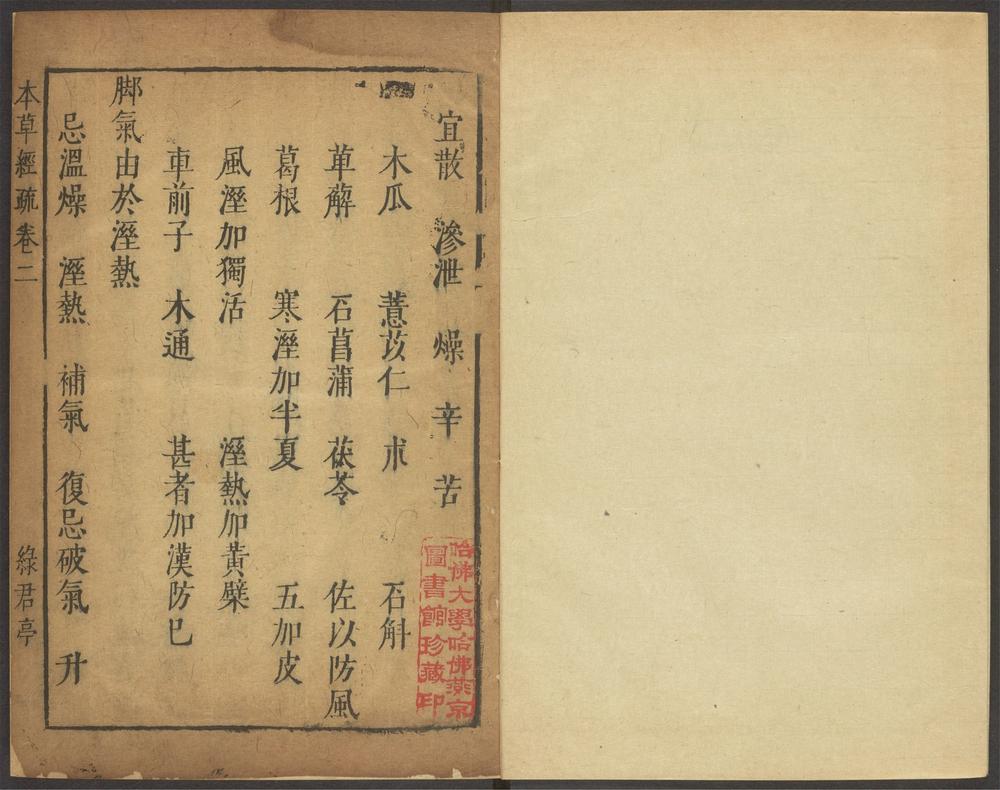 宜散　滲泄　燥　辛　苦
木瓜　薏苡仁　朮　石斛
萆薢　石菖蒲　茯苓　佐以防風
葛根　寒溼加半夏　五加皮
風溼加獨活　溼熱加黃檗
車前子　木通　甚者加漢防已
脚氣由於溼熱
忌溫燥　溼熱　補氣　復忌破氣　升
本草經疏卷二　綠君亭
哈佛大學哈佛燕京
圖書館珍藏印